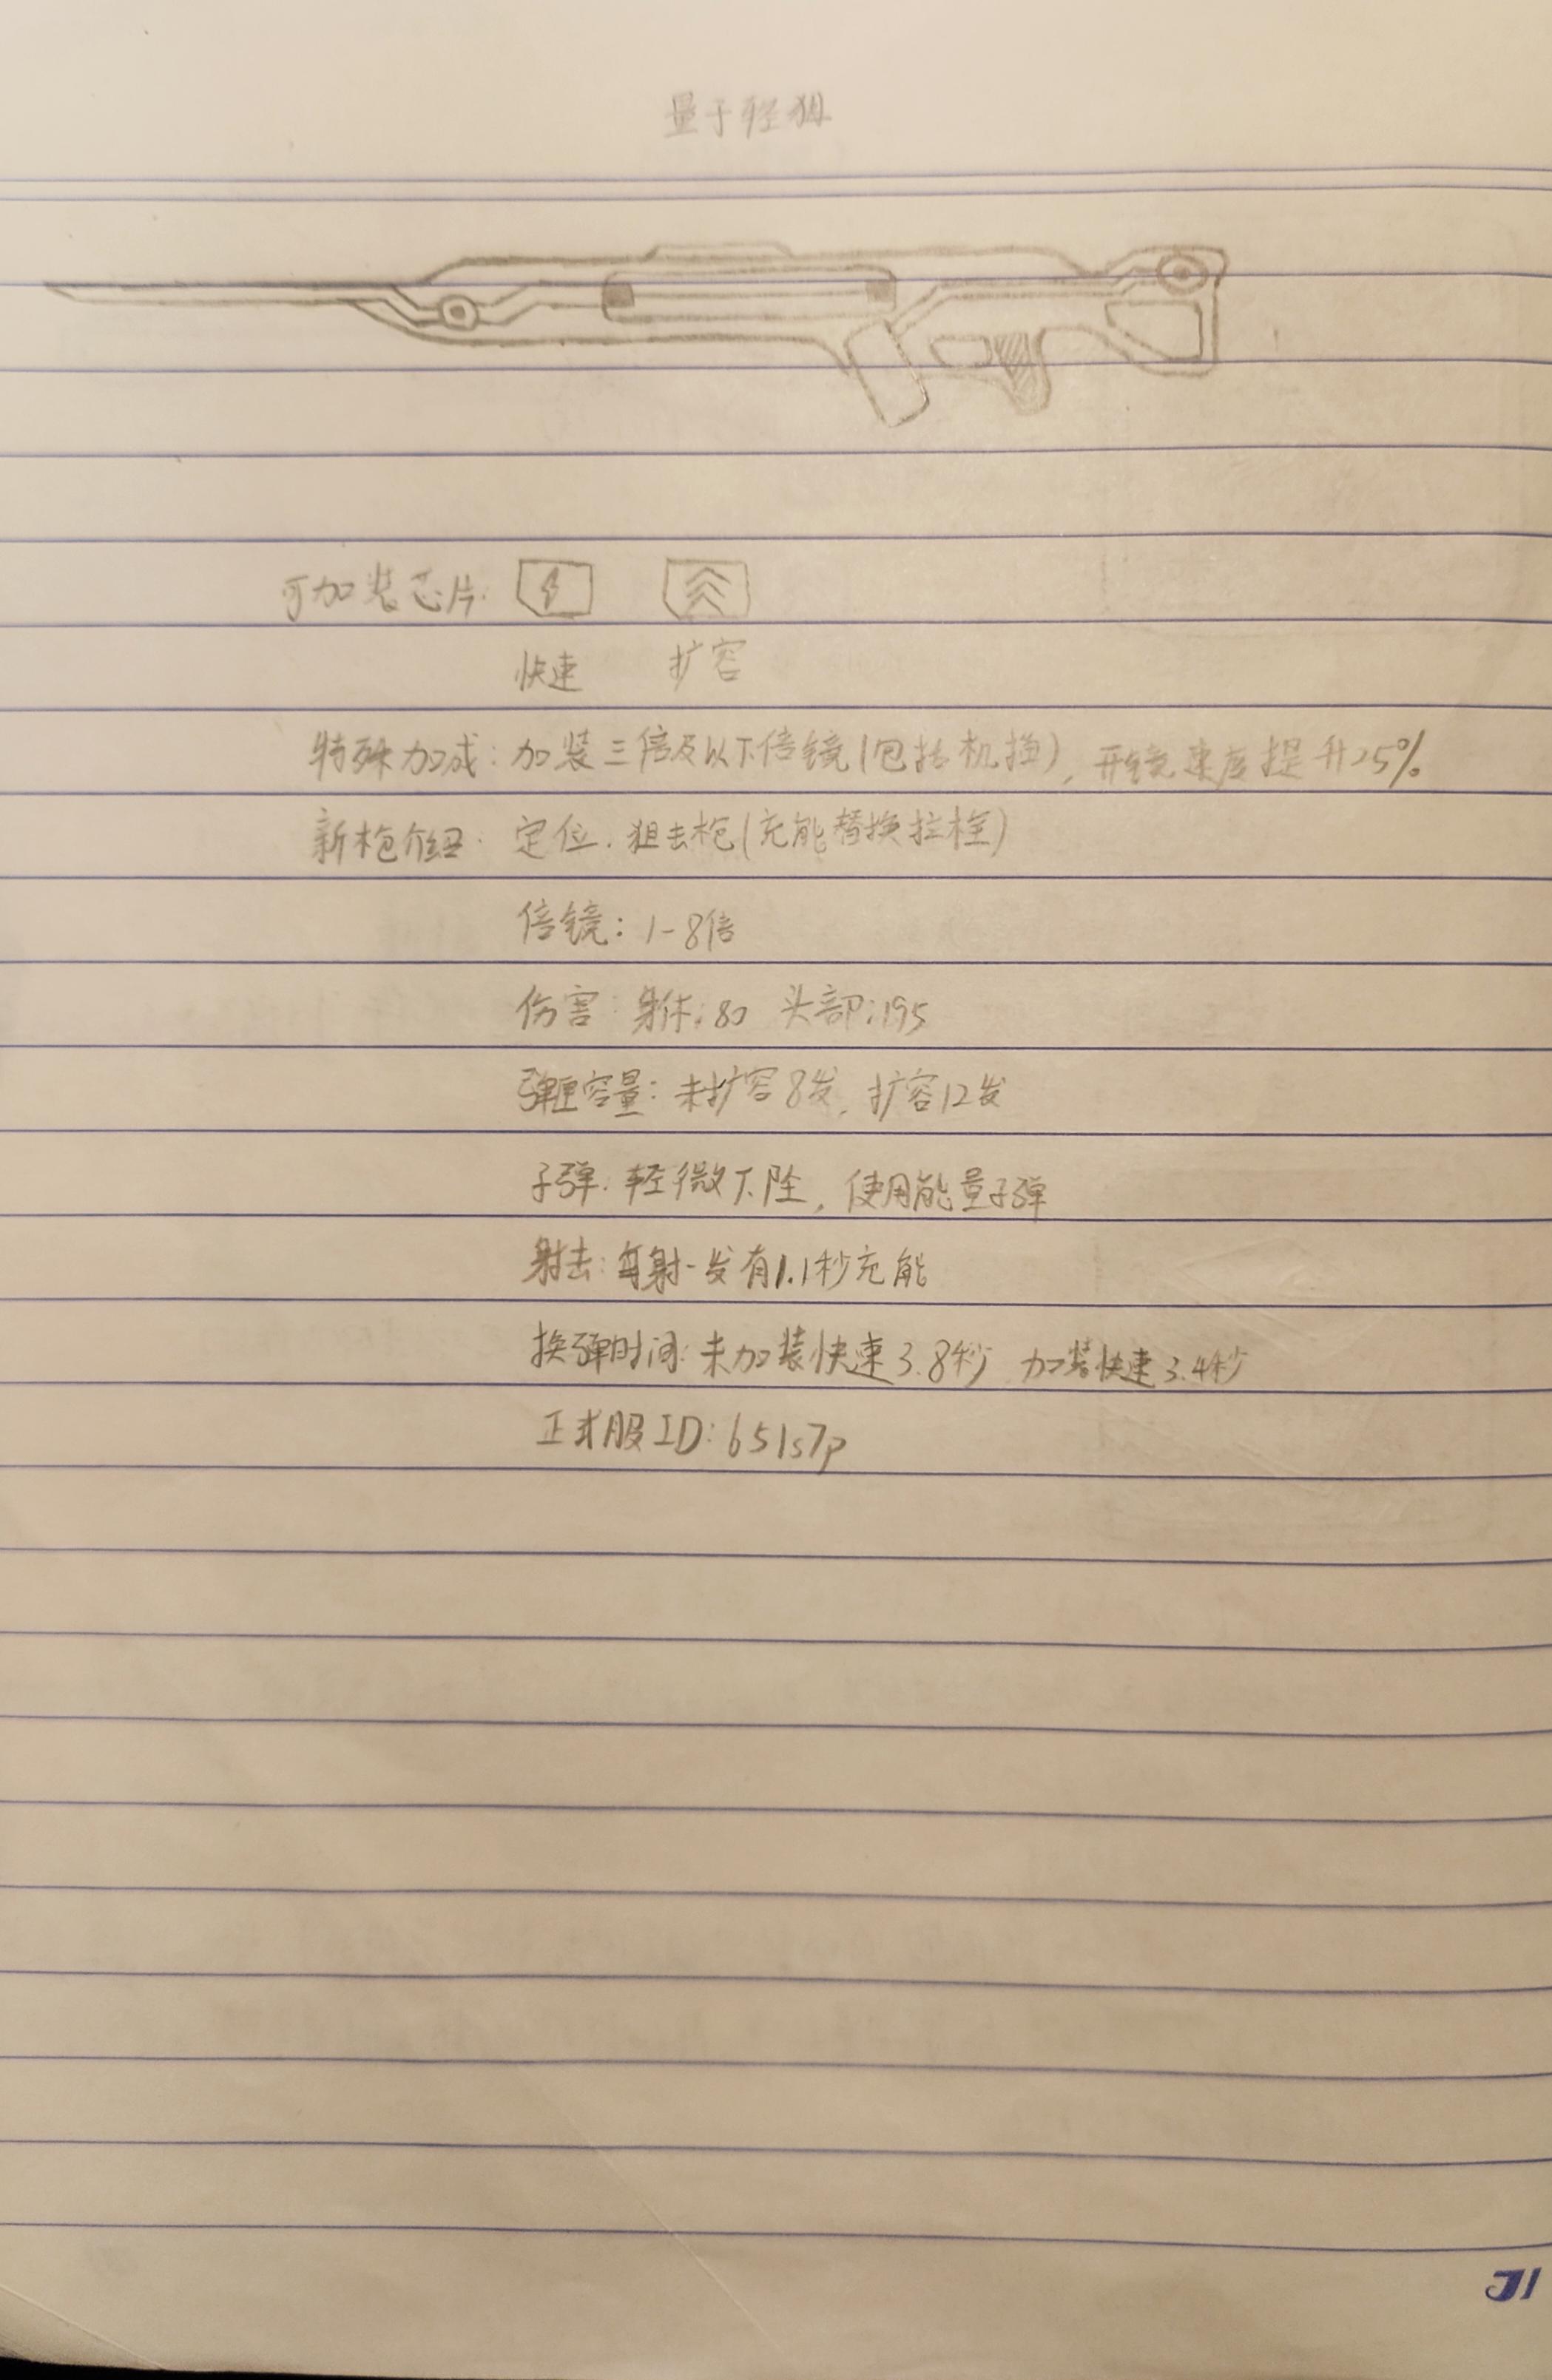 量子轻狙
可加装芯片:
快速 扩容
特殊加成: 加装三倍及以下倍镜(包括机瞄), 开镜速度提升25%
新枪介绍: 定位: 狙击枪(充能替换拉栓)
倍镜: 1-8倍
伤害: 身体: 80 头部: 195
弹匣容量: 未扩容8发, 扩容12发
子弹: 轻微下坠, 使用能量子弹
射击: 每射一发有1.1秒充能
换弹时间: 未加装快速3.8秒 加装快速3.4秒
正式服ID: 651s7p